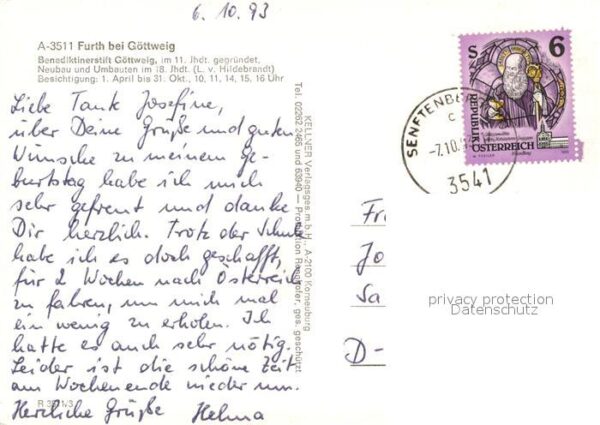 6.10.93
A-3511 Furth bei Göttweig
Benediktinerstift Göttweig, im 11. Jhdt. gegründet,
Neubau und Umbauten im 18. Jhdt. (L. v. Hildebrandt)
Besichtigung: 1. April bis 31. Okt., 10, 11, 14, 15, 16 Uhr
Liebe Tante Josefine,
über Deine Grüße und guten
Wünsche zu meinem Ge-
burtstag habe ich mich
sehr gefreut und danke
Dir herzlich. Trotz der Schule
habe ich es doch geschafft,
für 2 Wochen nach Österreich
zu fahren, um mich mal
ein wenig zu erholen. Ich
hatte es auch sehr nötig.
Leider ist die schöne Zeit
am Wochenende wieder um.
Herzliche Grüße Helma
KELLNER Verlagsges.m.b.H., A-2100 Korneuburg
Tel. 02262 2465 und 63940 — Produktion ges. geschützt
S 6
REPUBLIK
ÖSTERREICH
SENFTENBE
c
-7.10.9
3541
Fr
Jo
Sa
D-
privacy protection
Datenschutz